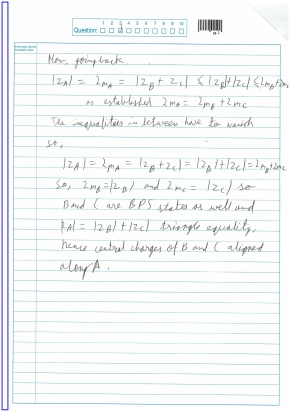 1 2 3 4 5 6 7 8 9 10
Question:
Now, going back.
|Z_A| = 2m_A = |Z_B + Z_C| ≤ |Z_B|+|Z_C| ≤ 2m_B+2m_C
as established 2m_A = 2m_B + 2m_C
The inequalities in between have to vanish
so,
|Z_A| = 2m_A = |Z_B + Z_C| = |Z_B|+|Z_C| = 2m_B+2m_C
So, 2m_B = |Z_B| and 2m_C = |Z_C| so
B and C are BPS states as well and
|Z_A| = |Z_B| + |Z_C| triangle equality,
hence central charges of B and C aligned
along A.